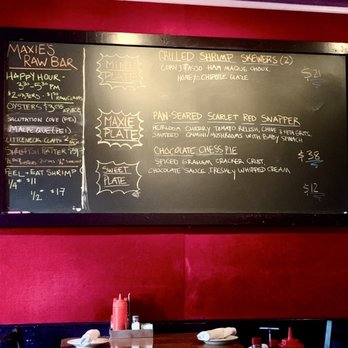 MAXIE'S
RAW BAR
HAPPY HOUR -
3PM-5PM
OYSTERS $3.00
SALUTATION COVE (PEI)
MALPEQUE (PEI)
LITTLENECK CLAMS
PEEL & EAT SHRIMP
1/4# $11
1/2# $17
MINI
PLATE
CHILLED SHRIMP SKEWERS (2)
CORN & TASSO HAM MAQUE CHOUX
HONEY-CHIPOTLE GLAZE
$21
MAXIE
PLATE
PAN-SEARED SCARLET RED SNAPPER
HEIRLOOM CHERRY TOMATO RELISH, CHIVE & FETA GRITS,
SAUTEED CREMINI MUSHROOMS WITH BABY SPINACH
$38
SWEET
PLATE
CHOCOLATE CHESS PIE
SPICED GRAHAM CRACKER CRUST
CHOCOLATE SAUCE, FRESHLY WHIPPED CREAM
$12